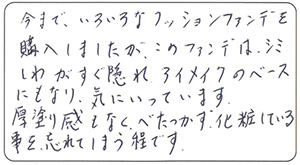 今まで、いろいろなクッションファンデを
購入しましたが、このファンデは、シミ
しわがすぐ隠れ、アイメイクのベース
にもなり、気にいっています。
厚塗り感もなく、べたつかず、化粧している
事を、忘れてしまう程です。